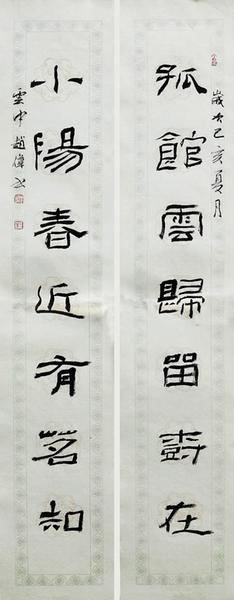 孤館雲歸留壽在
歲次己亥夏月
小陽春近有茗知
雲中趙偉書